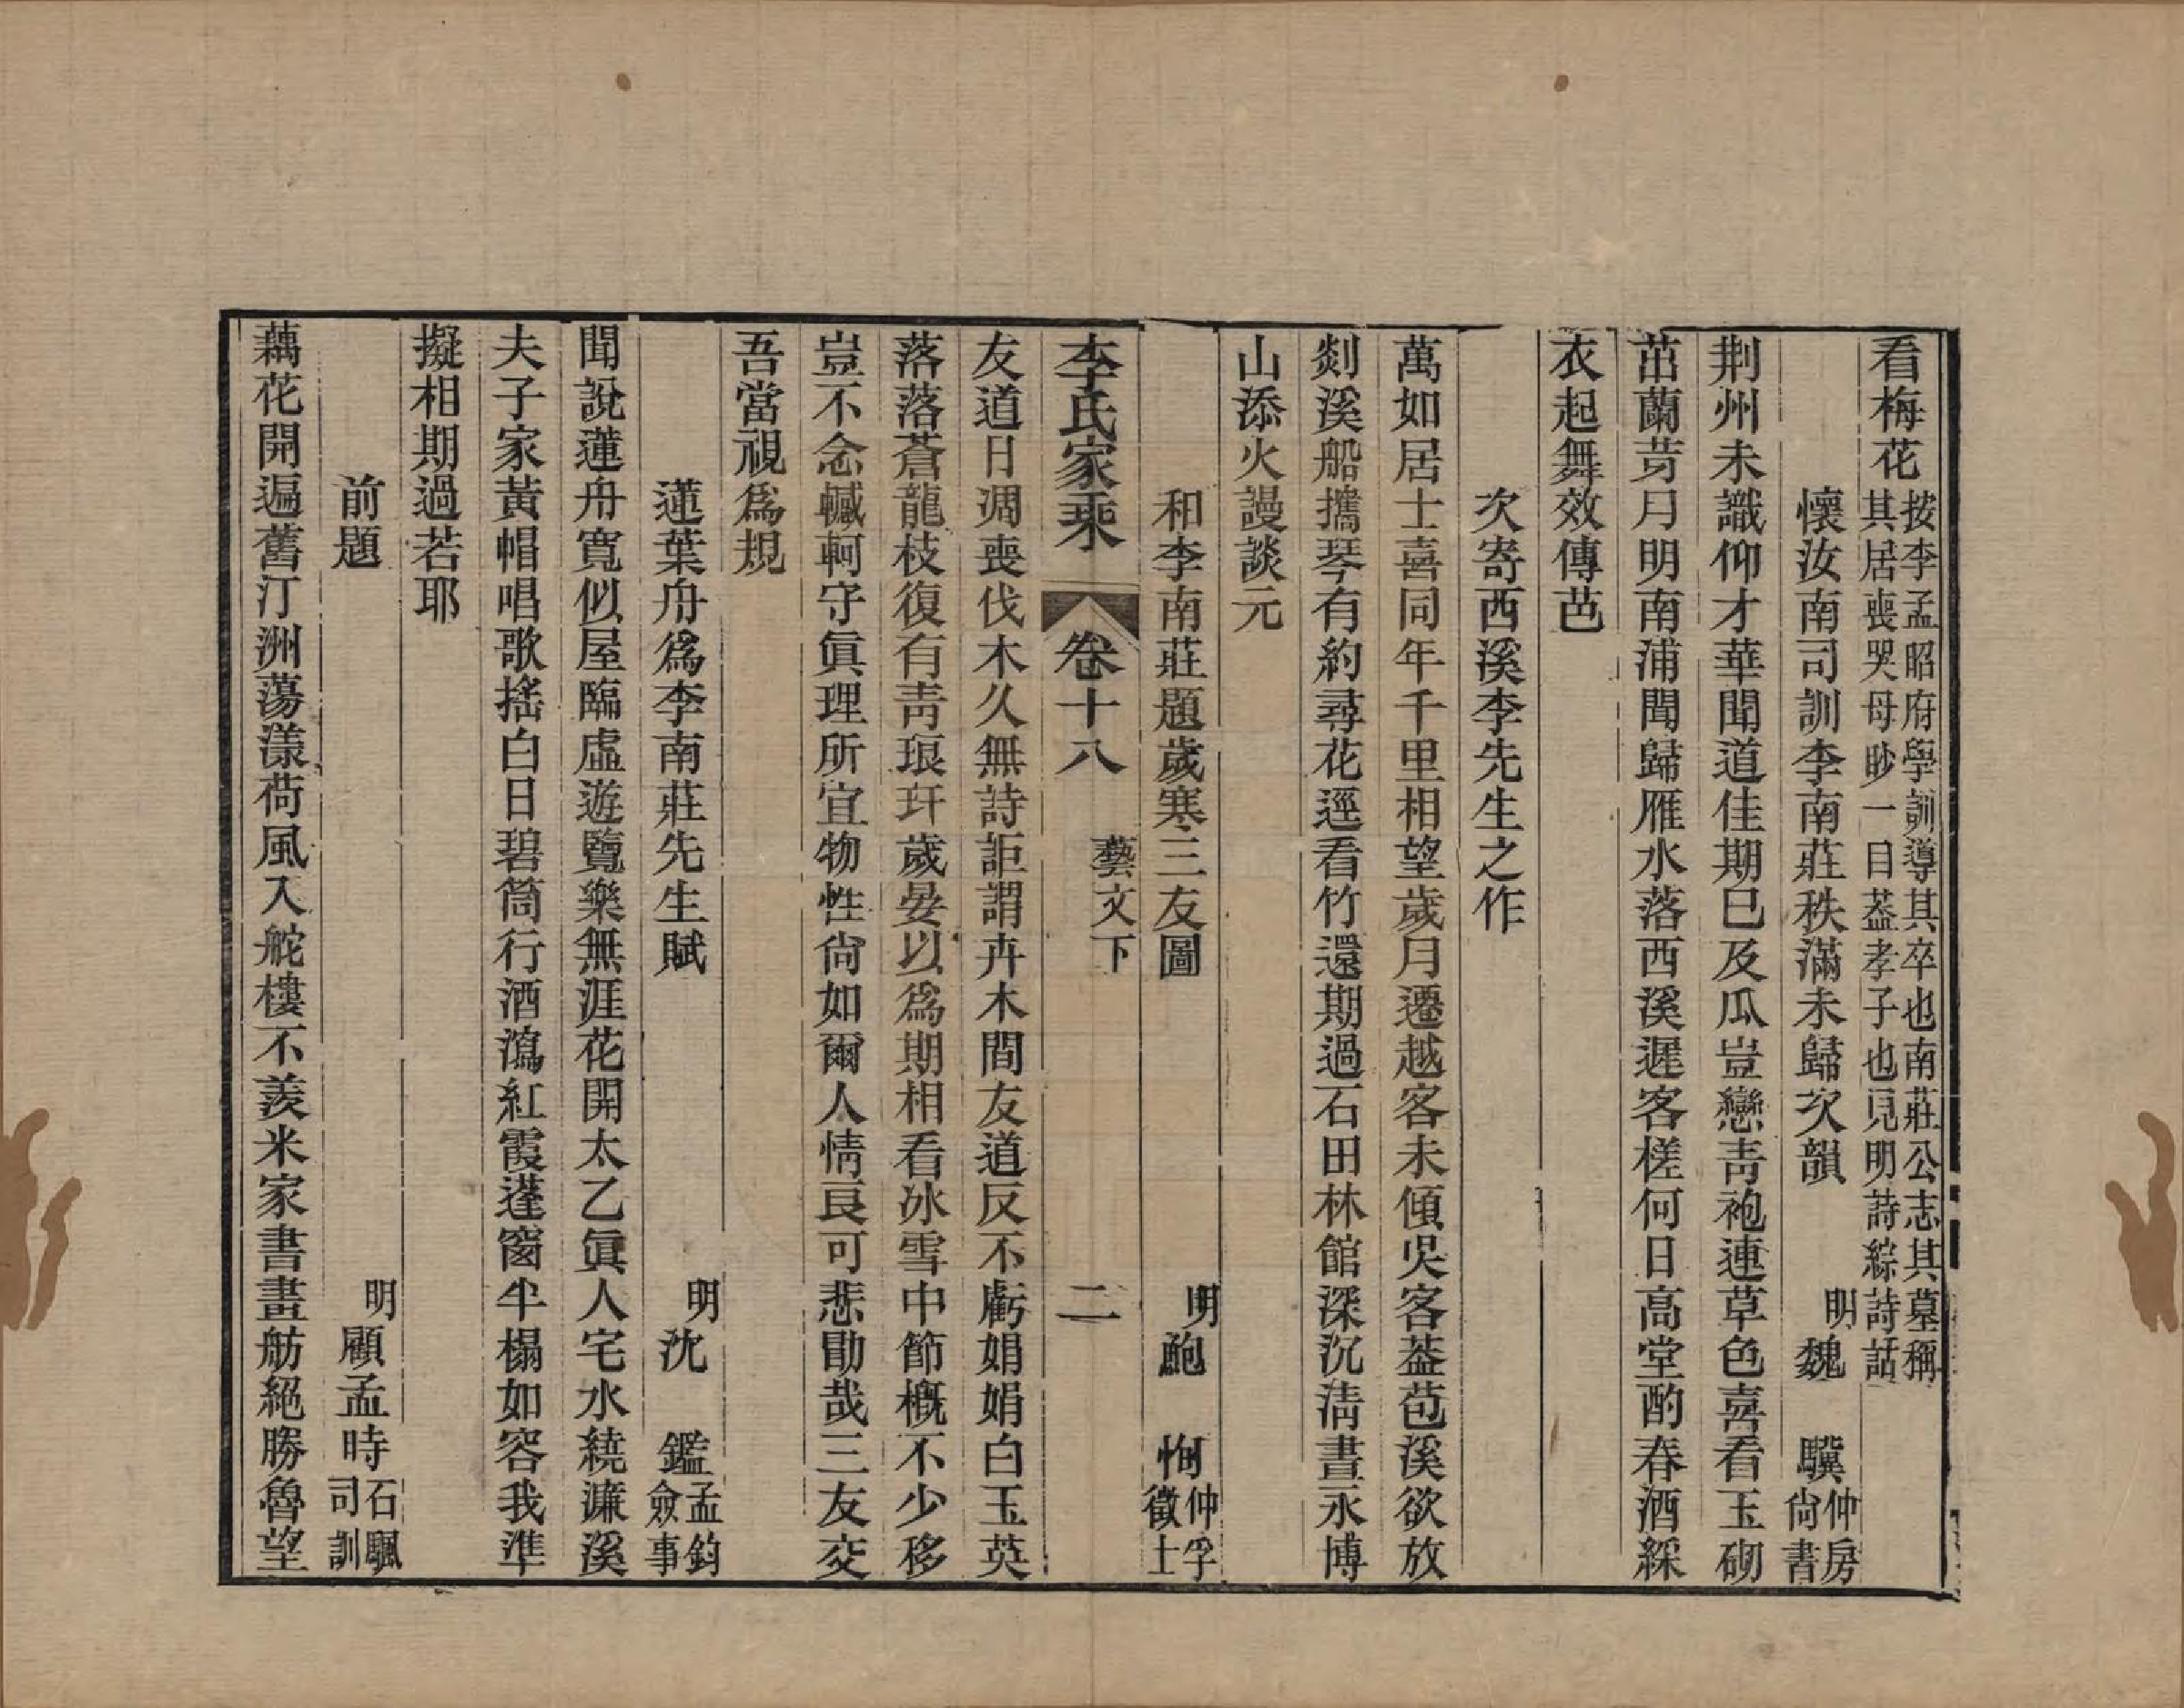 看梅花按李孟昭府學訓導其卒也南莊公志其墓稱
其居喪哭母眇一目葢孝子也見明詩綜詩話
懷汝南司訓李南莊秩滿未歸次韻　明魏　驥仲房尙書
荆州未識仰才華聞道佳期巳及瓜豈戀靑袍連草色喜看玉砌
茁蘭芽月明南浦聞歸雁水落西溪遲客槎何日高堂酌春酒綵
衣起舞效傳芭
次寄西溪李先生之作
萬如居士喜同年千里相望歲月遷越客未傾吳客葢苞溪欲放
剡溪船攜琴有約尋花逕看竹還期過石田林館深沉淸晝永博
山添火謾談元
和李南莊題歲寒三友圖　明鮑　恂仲孚徵士
李氏家乘　卷十八　藝文下　二
友道日凋喪伐木久無詩詎謂卉木間友道反不虧娟娟白玉英
落落蒼龍枝復有靑琅玕歲晏以爲期相看冰雪中節槪不少移
豈不念轗軻守眞理所宜物性尙如爾人情良可悲勖哉三友交
吾當視爲規
蓮葉舟爲李南莊先生賦　明沈　鑑孟鈞僉事
聞說蓮舟寬似屋臨虛遊覽樂無涯花開太乙眞人宅水繞濂溪
夫子家黃帽唱歌搖白日碧筒行酒瀉紅霞蓬窗半榻如容我準
擬相期過若耶
前題　明顧孟時石颿司訓
藕花開遍舊汀洲蕩漾荷風入舵樓不羨米家書畫舫絕勝魯望